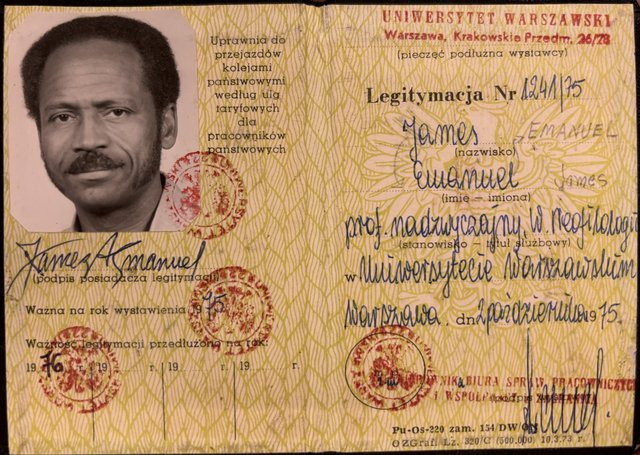 Uprawnia do
przejazdów
kolejami
państwowymi
według ulg
taryfowych
dla
pracowników
państwowych
James A Emanuel
(podpis posiadacza legitymacji)
Ważna na rok wystawienia 1975
Ważność legitymacji przedłużono na rok:
1976 r. 19 r. 19 r. 19 r.
UNIWERSYTET WARSZAWSKI
Warszawa, Krakowskie Przedm. 26/28
(pieczęć podłużna wystawcy)
Legitymacja Nr 1241/75
James EMANUEL
(nazwisko)
Emanuel James
(imię — imiona)
prof. nadzwyczajny, W. Neofilologii
(stanowisko — tytuł służbowy)
w Uniwersytecie Warszawskim
Warszawa, dn. 2 października 1975.
BIURA SPRAW PRACOWNICZYCH
I
Pu-Os-220 zam. 154/DW/
OZGraf. Łz. 320/C (500.000) 10.3.73 r.